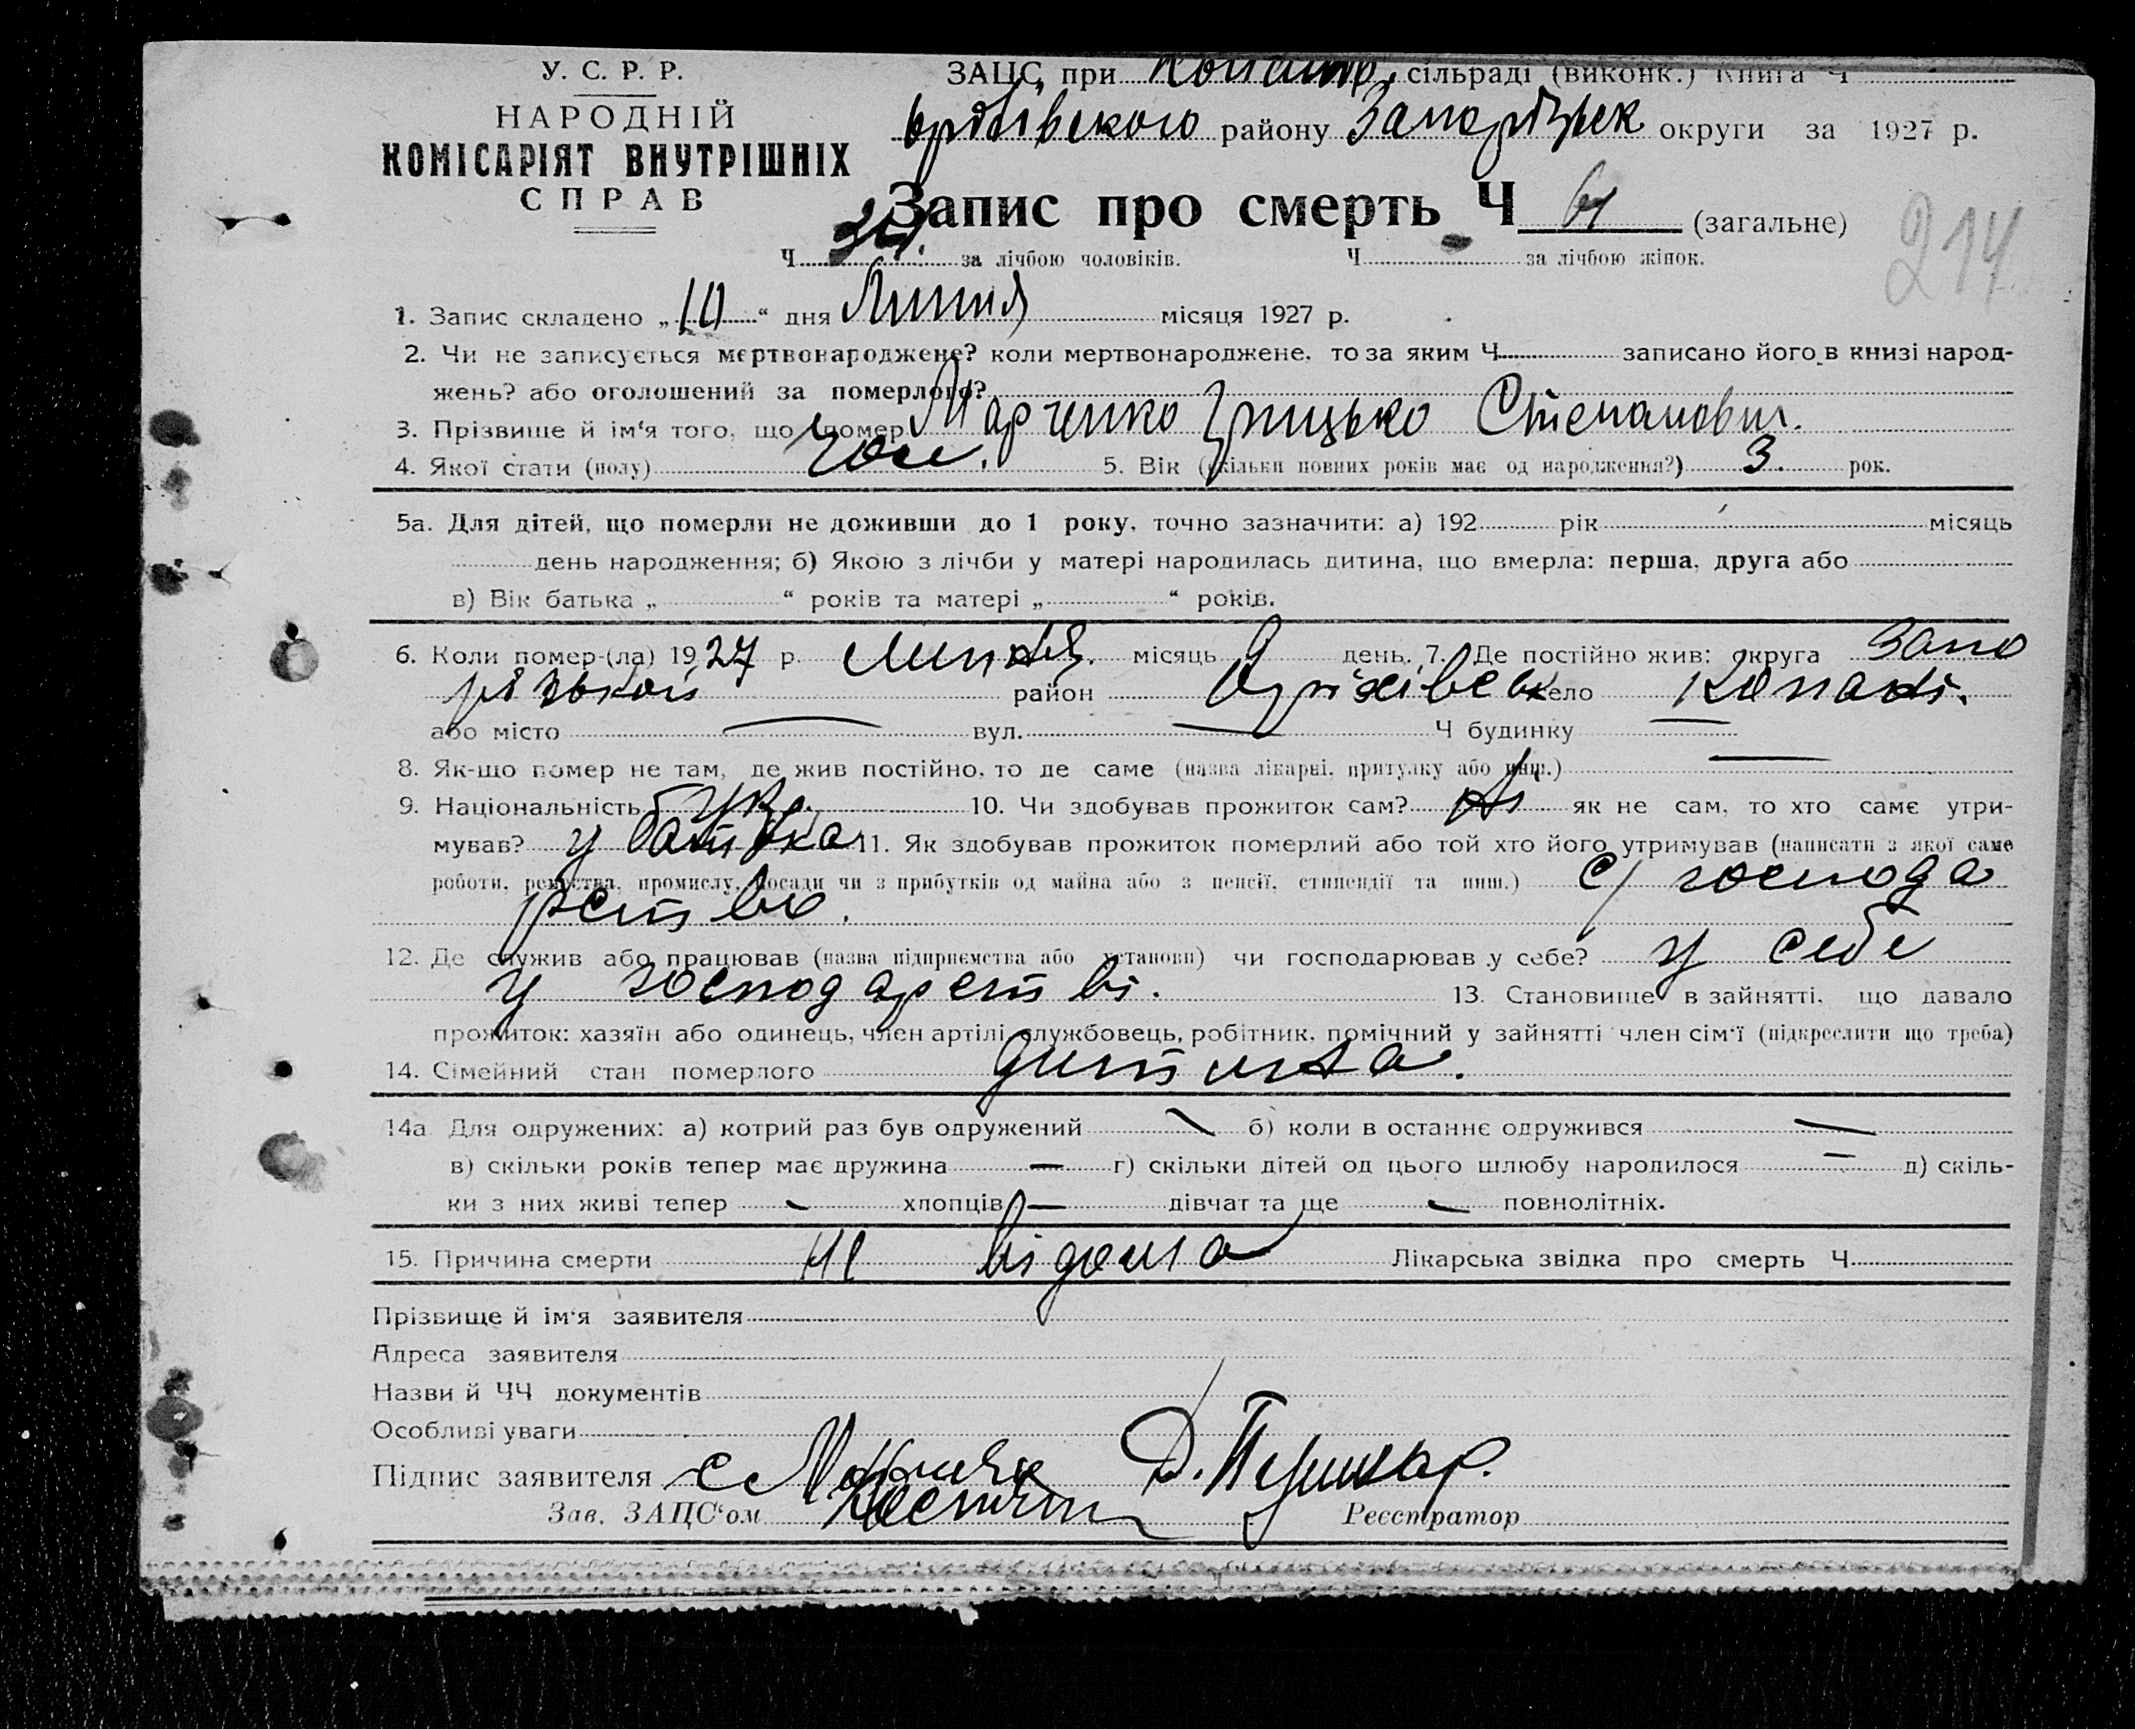 У. С. Р. Р.
НАРОДНІЙ
КОМІСАРІЯТ ВНУТРІШНІХ
СПРАВ
ЗАЦС при сільраді (виконк.) Книга Ч
району Запорізьк округи за 1927 р.
Запис про смерть Ч (загальне)
214
Ч за лічбою чоловіків. Ч за лічбою жінок.
1. Запис складено „10“ дня Липня місяця 1927 р.
2. Чи не записується мертвонароджене? коли мертвонароджене, то за яким Ч записано його в книзі народ-
жень? або оголошений за померлого?
3. Прізвище й ім'я того, що помер Марченко Грицько Степанович.
4. Якої стати (полу) чол. 5. Вік (скільки повних років має од народження?) 3. рок.
5а. Для дітей, що померли не доживши до 1 року, точно зазначити: а) 192 рік місяць
день народження; б) Якою з лічби у матері народилась дитина, що вмерла: перша, друга або
в) Вік батька „ “ років та матері „ “ років.
6. Коли помер-(ла) 1927 р. Липня. місяць 9 день. 7. Де постійно жив: округа Запо
різької район Оріхівськ село Копані.
або місто — вул. — Ч будинку —
8. Як-що помер не там, де жив постійно, то де саме (назва лікарні, притулку або инш.) —
9. Національність укр. 10. Чи здобував прожиток сам? ні як не сам, то хто саме утри-
мував? у батька 11. Як здобував прожиток померлий або той хто його утримував (написати з якої саме
роботи, ремества, промислу, посади чи з прибутків од майна або з пенсії, стипендії та инш.) с/господа
рство.
12. Де служив або працював (назва підприємства або установи) чи господарював у себе? у себе
у господарстві. 13. Становище в зайнятті, що давало
прожиток: хазяїн або одинець, член артілі, службовець, робітник, помічний у зайнятті член сім'ї (підкреслити що треба)
14. Сімейний стан померлого дитина.
14а Для одружених: а) котрий раз був одружений — б) коли в останнє одружився —
в) скільки років тепер має дружина — г) скільки дітей од цього шлюбу народилося — д) скіль-
ки з них живі тепер — хлопців — дівчат та ще — повнолітніх.
15. Причина смерти не відома Лікарська звідка про смерть Ч
Прізвище й ім'я заявителя
Адреса заявителя
Назви й ЧЧ документів
Особливі уваги
Підпис заявителя
Зав. ЗАЦС'ом Реєстратор